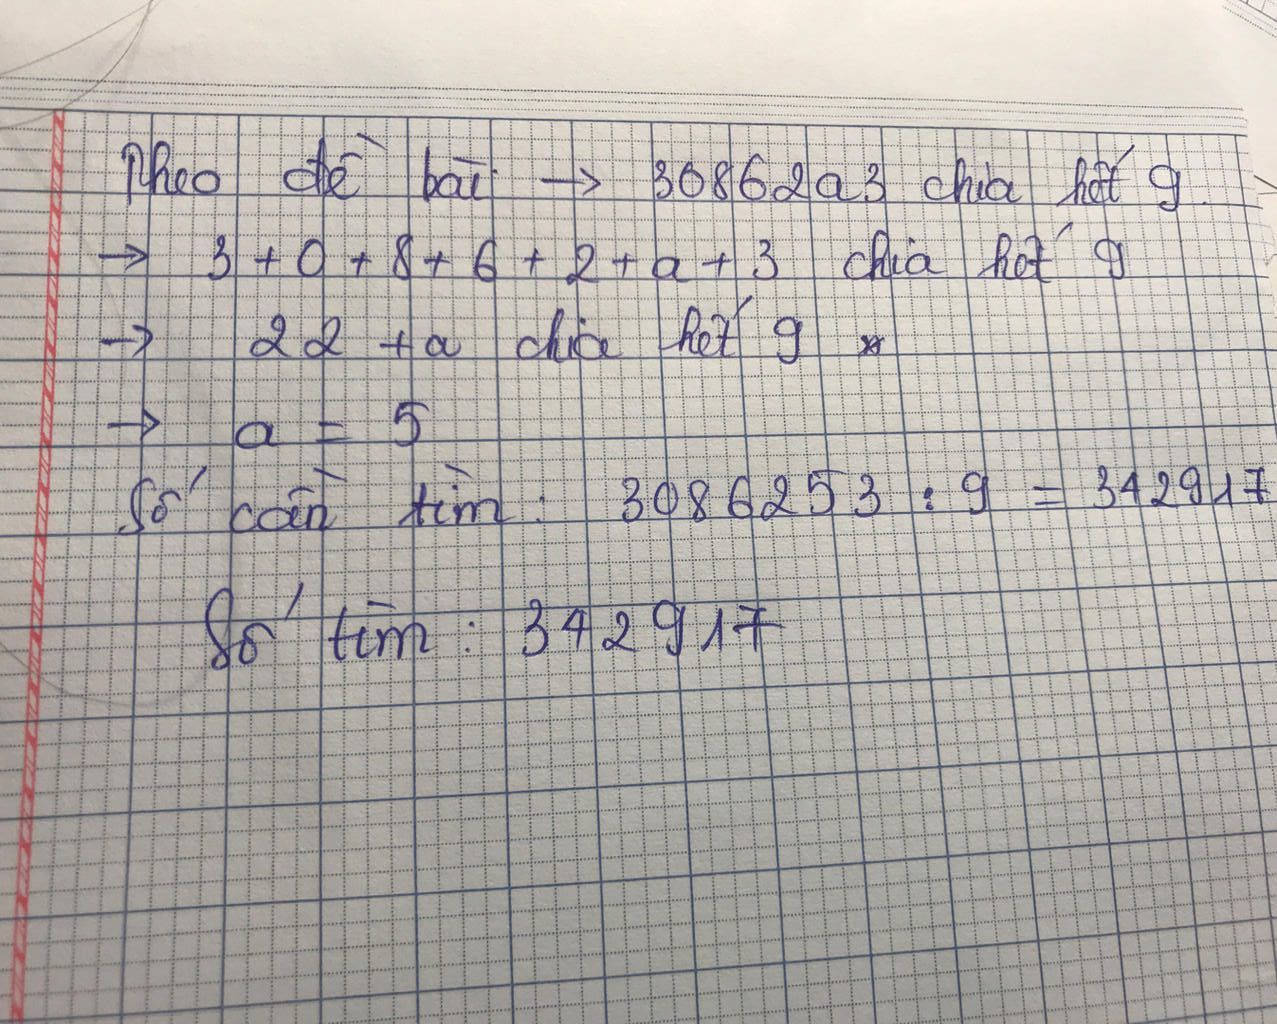 Theo đề bài → 30862a3 chia hết 9.
→ 3 + 0 + 8 + 6 + 2 + a + 3 chia hết 9
→ 22 + a chia hết 9 *
→ a = 5
Số cần tìm: 3086253 : 9 = 342917
Số tìm: 342917